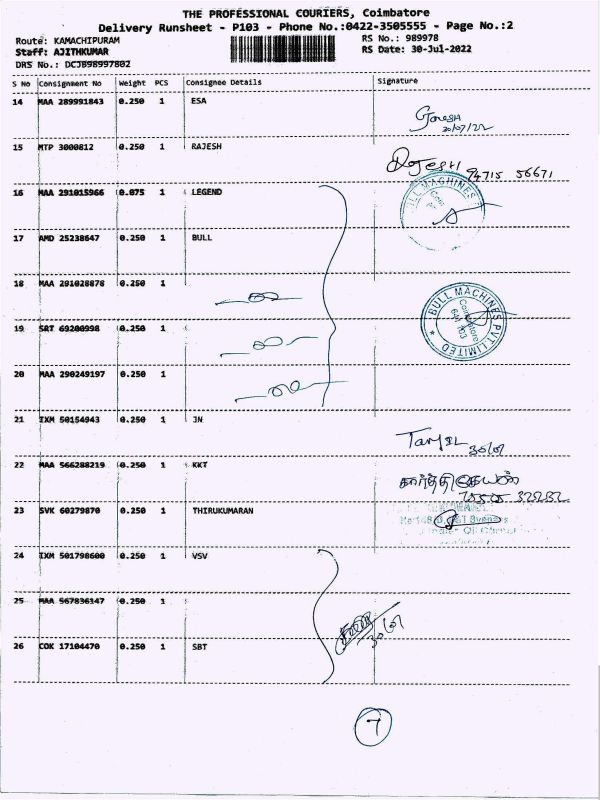 THE PROFESSIONAL COURIERS, Coimbatore
Delivery Runsheet - P103 - Phone No.:0422-3505555 - Page No.:2
Route: KAMACHIPURAM
RS No.: 989978
Staff: AJITHKUMAR
RS Date: 30-Jul-2022
DRS No.: DCJB98997802
S No Consignment No Weight PCS Consignee Details Signature
14 MAA 289991843 0.250 1 ESA Ganesh
15 MTP 3000812 0.250 1 RAJESH Rajesh 94715 56671
16 MAA 291015966 0.075 1 LEGEND
17 AMD 25238647 0.250 1 BULL
18 MAA 291028878 0.250 1
BULL MACHINES PVT. LIMITED
Coimbatore
641 103
19 SRT 69200998 0.250 1
20 MAA 290249197 0.250 1
21 IXM 50154943 0.250 1 JN 30/07
22 MAA 566288219 0.250 1 KKT கார்த்திகேயன்
23 SVK 60279870 0.250 1 THIRUKUMARAN
24 IXM 501798600 0.250 1 VSV
25 MAA 567836147 0.250 1
30/07
26 COK 17104470 0.250 1 SBT
7